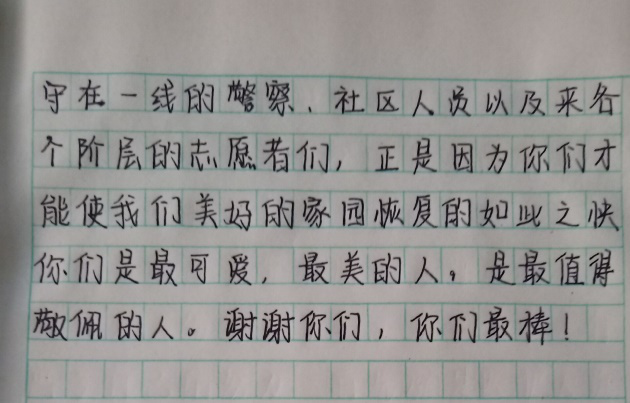 守在一线的警察、社区人员以及来各
个阶层的志愿者们，正是因为你们才
能使我们美好的家园恢复的如此之快
你们是最可爱，最美的人，是最值得
敬佩的人。谢谢你们，你们最棒！